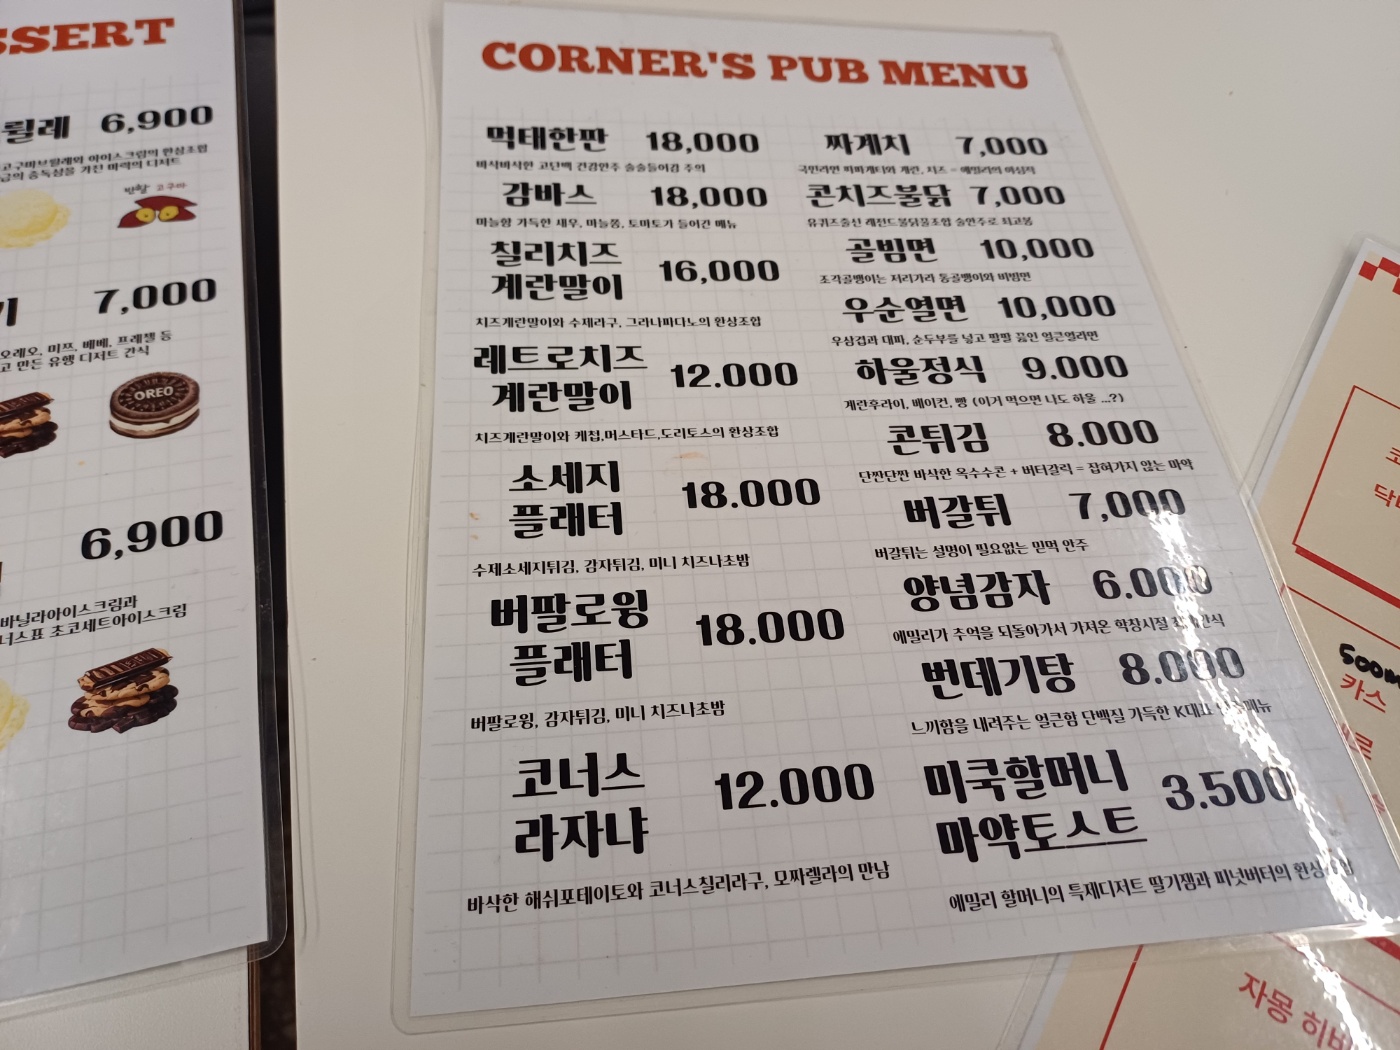 SSERT
륄레 6,900
고구마브륄레와 아이스크림의 환상조합
급의 중독성을 가진 마력의 디저트
반할 고구마
기 7,000
오레오, 미프, 베베, 프레첼 등
고 만든 유행 디저트 간식
OREO
6,900
바닐라아이스크림과
너스표 초코세트아이스크림
CORNER'S PUB MENU
먹태한판 18,000
바삭바삭한 고단백 건강안주 술술들어감 주의
감바스 18,000
마늘향 가득한 새우, 마늘쫑, 토마토가 들어간 메뉴
칠리치즈
계란말이 16,000
치즈계란말이와 수제라구, 그라나파다노의 환상조합
레트로치즈
계란말이 12.000
치즈계란말이와 케첩,머스타드,도리토스의 환상조합
소세지
플래터 18.000
수제소세지튀김, 감자튀김, 미니 치즈나초밤
버팔로윙
플래터 18.000
버팔로윙, 감자튀김, 미니 치즈나초밤
코너스
라자냐 12.000
바삭한 해쉬포테이토와 코너스칠리라구, 모짜렐라의 만남
짜게치 7,000
국민라면 짜파게티와 계란, 치즈 = 에밀리의 야심작
콘치즈불닭 7,000
유퀴즈출신 레전드불닭꿀조합 술안주로 최고봉
골빔면 10,000
조각골뱅이는 저리가라 통골뱅이와 비빔면
우순열면 10,000
우삼겹과 대파, 순두부를 넣고 팔팔 끓인 얼큰열라면
하울정식 9.000
계란후라이, 베이컨, 빵 (이거 먹으면 나도 하울 ...?)
콘튀김 8.000
단짠단짠 바삭한 옥수수콘 + 버터갈릭 = 잡혀가지 않는 마약
버갈튀 7,000
버갈튀는 설명이 필요없는 믿먹 안주
양념감자 6.000
에밀리가 추억을 되돌아가서 가져온 학창시절 간식
번데기탕 8.000
느끼함을 내려주는 얼큰함 단백질 가득한 K대표
미쿡할머니
마약토스트 3.500
에밀리 할머니의 특제디저트 딸기잼과 피넛버터의
500m
카스
자몽 히비